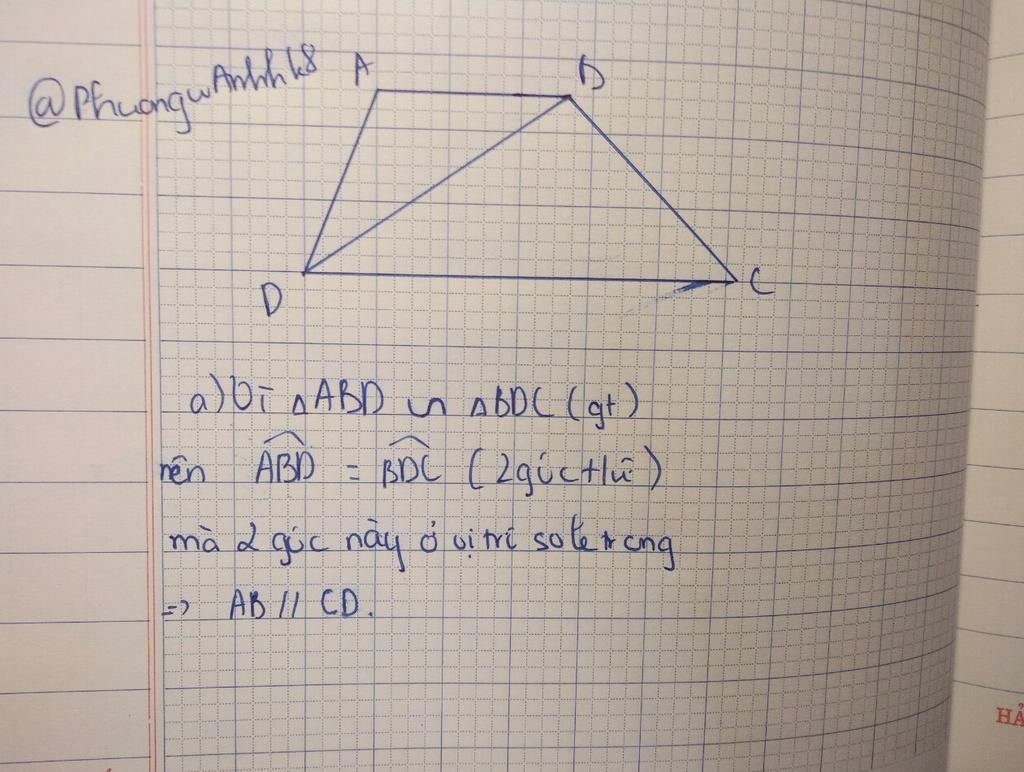 @PhuongwAnhhk8
A
B
D
C
a) Vì △ABD ∽ △BDC (gt)
nên ABD = BDC (2 góc t/ứ)
mà 2 góc này ở vị trí so le trong
=> AB // CD.
HẢ